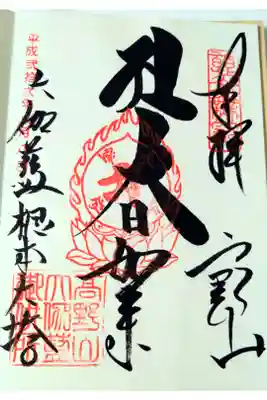 奉拝 高野山
胎大日如来
大伽藍 根本大塔
平成弐拾弐年
高野山
大伽藍